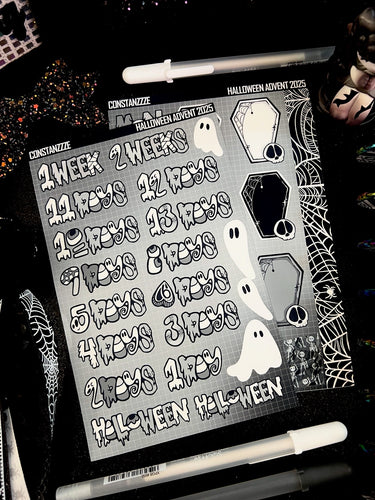 CONSTANZZZE HALLOWEEN ADVENT 2025
CONSTANZZZE HALLOWEEN ADVENT 2025
1 WEEK 2 WEEKS
11 DAYS 12 DAYS
10 DAYS 13 DAYS
7 DAYS 8 DAYS
5 DAYS 6 DAYS
4 DAYS 3 DAYS
2 DAYS 1 DAY
HALLOWEEN HALLOWEEN